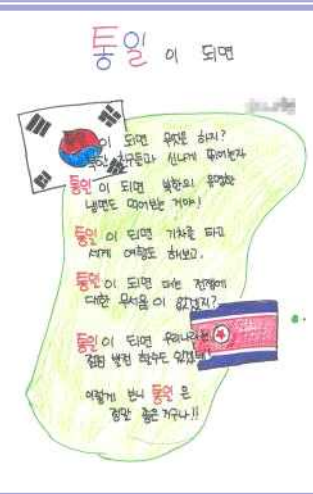 통일이 되면
통일이 되면 무엇을 하지?
북한 친구들과 신나게 뛰어놀자
통일이 되면 북한의 유명한
냉면도 먹어보는 거야!
통일이 되면 기차를 타고
세계 여행도 해보고.
통일이 되면 더는 전쟁에
대한 무서움이 없겠지?
통일이 되면 우리나라는
점점 발전 할수도 있겠네!
이렇게 보니 통일은
정말 좋은거구나!!